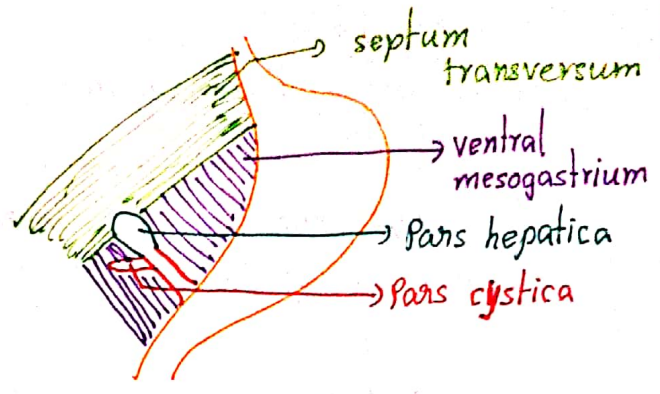 septum
transversum
ventral
mesogastrium
Pars hepatica
Pars cystica